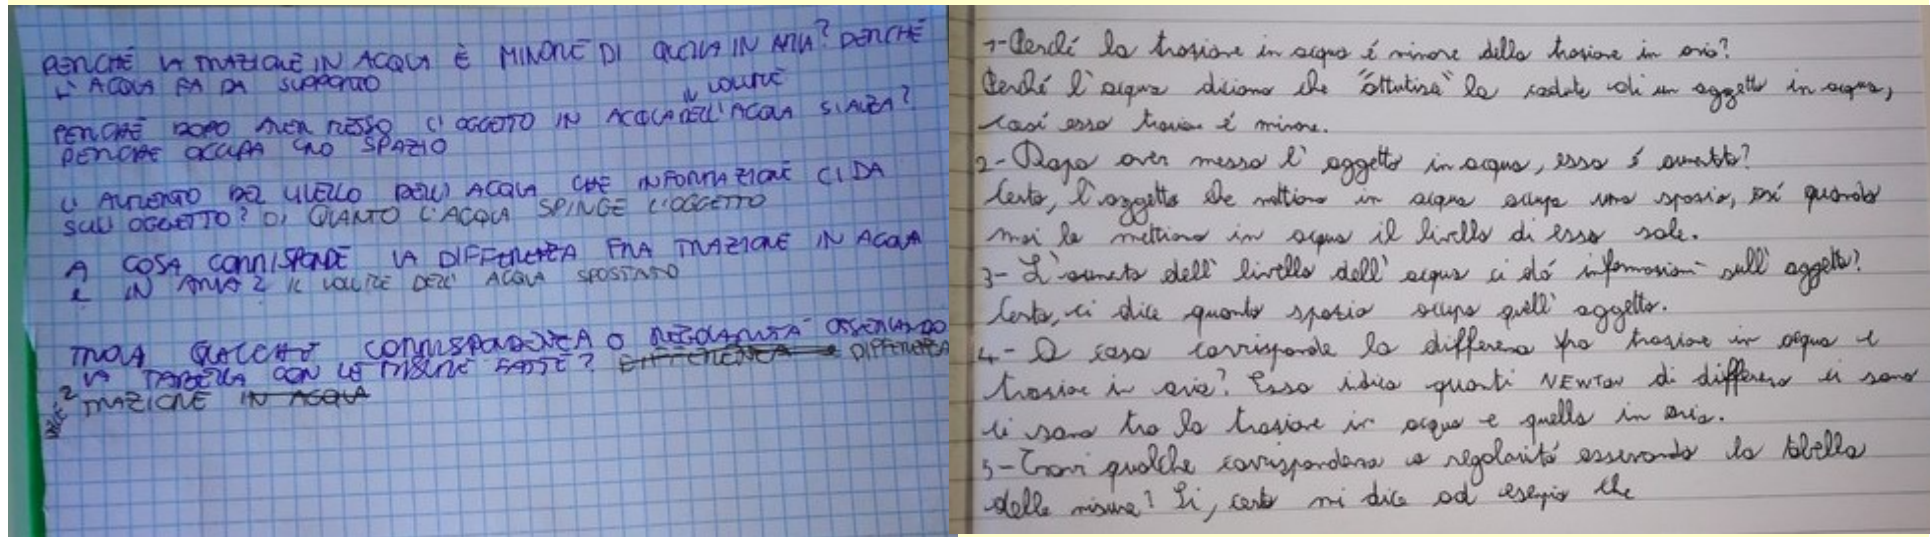 PERCHÉ LA TRAZIONE IN ACQUA È MINORE DI QUELLA IN ARIA? PERCHÉ
L'ACQUA FA DA SUPPORTO
IL VOLUME
PERCHÉ DOPO AVER MESSO L'OGGETTO IN ACQUA DELL'ACQUA SI ALZA?
PERCHÉ OCCUPA UNO SPAZIO
L' AUMENTO DEL LIVELLO DELL' ACQUA CHE INFORMAZIONE CI DA
SULL OGGETTO? DI QUANTO L'ACQUA SPINGE L'OGGETTO
A COSA CORRISPONDE LA DIFFERENZA FRA TRAZIONE IN ACQUA
E IN ARIA? IL VOLUME DELL' ACQUA SPOSTATO
TROVA QUALCHE CORRISPONDENZA O REGOLARITÀ OSSERVANDO
LA TABELLA CON LE MISURE FATTE? DIFFERENZA DIFFERENZA
TRAZIONE IN ACQUA
1-Perché la trazione in acqua é minore della trazione in aria?
Perché l'acqua diciamo che "attutisa" la caduta di un oggetto in acqua,
così essa trazione é minore.
2- Dopo aver messo l' oggetto in acqua, essa é aumentata?
Certo, l'oggetto che mettiamo in acqua occupa uno spazio, così quando
noi lo mettiamo in acqua il livello di essa sale.
3- L'aumeto dell' livello dell' acqua ci dá informazioni sull' oggetto?
Certo, ci dice quanto spazio occupa quell' oggetto.
4- A cosa corrisponde la differenza fra trazione in acqua e
trazione in aria? Essa idica quanti NEWTON di differenza ci sono
ci sono tra la trazione in acqua e quella in aria.
5- Trovi qualche corrispondenza o regolaritá osservando la tabella
delle misure? Si, certo mi dice ad esempio che